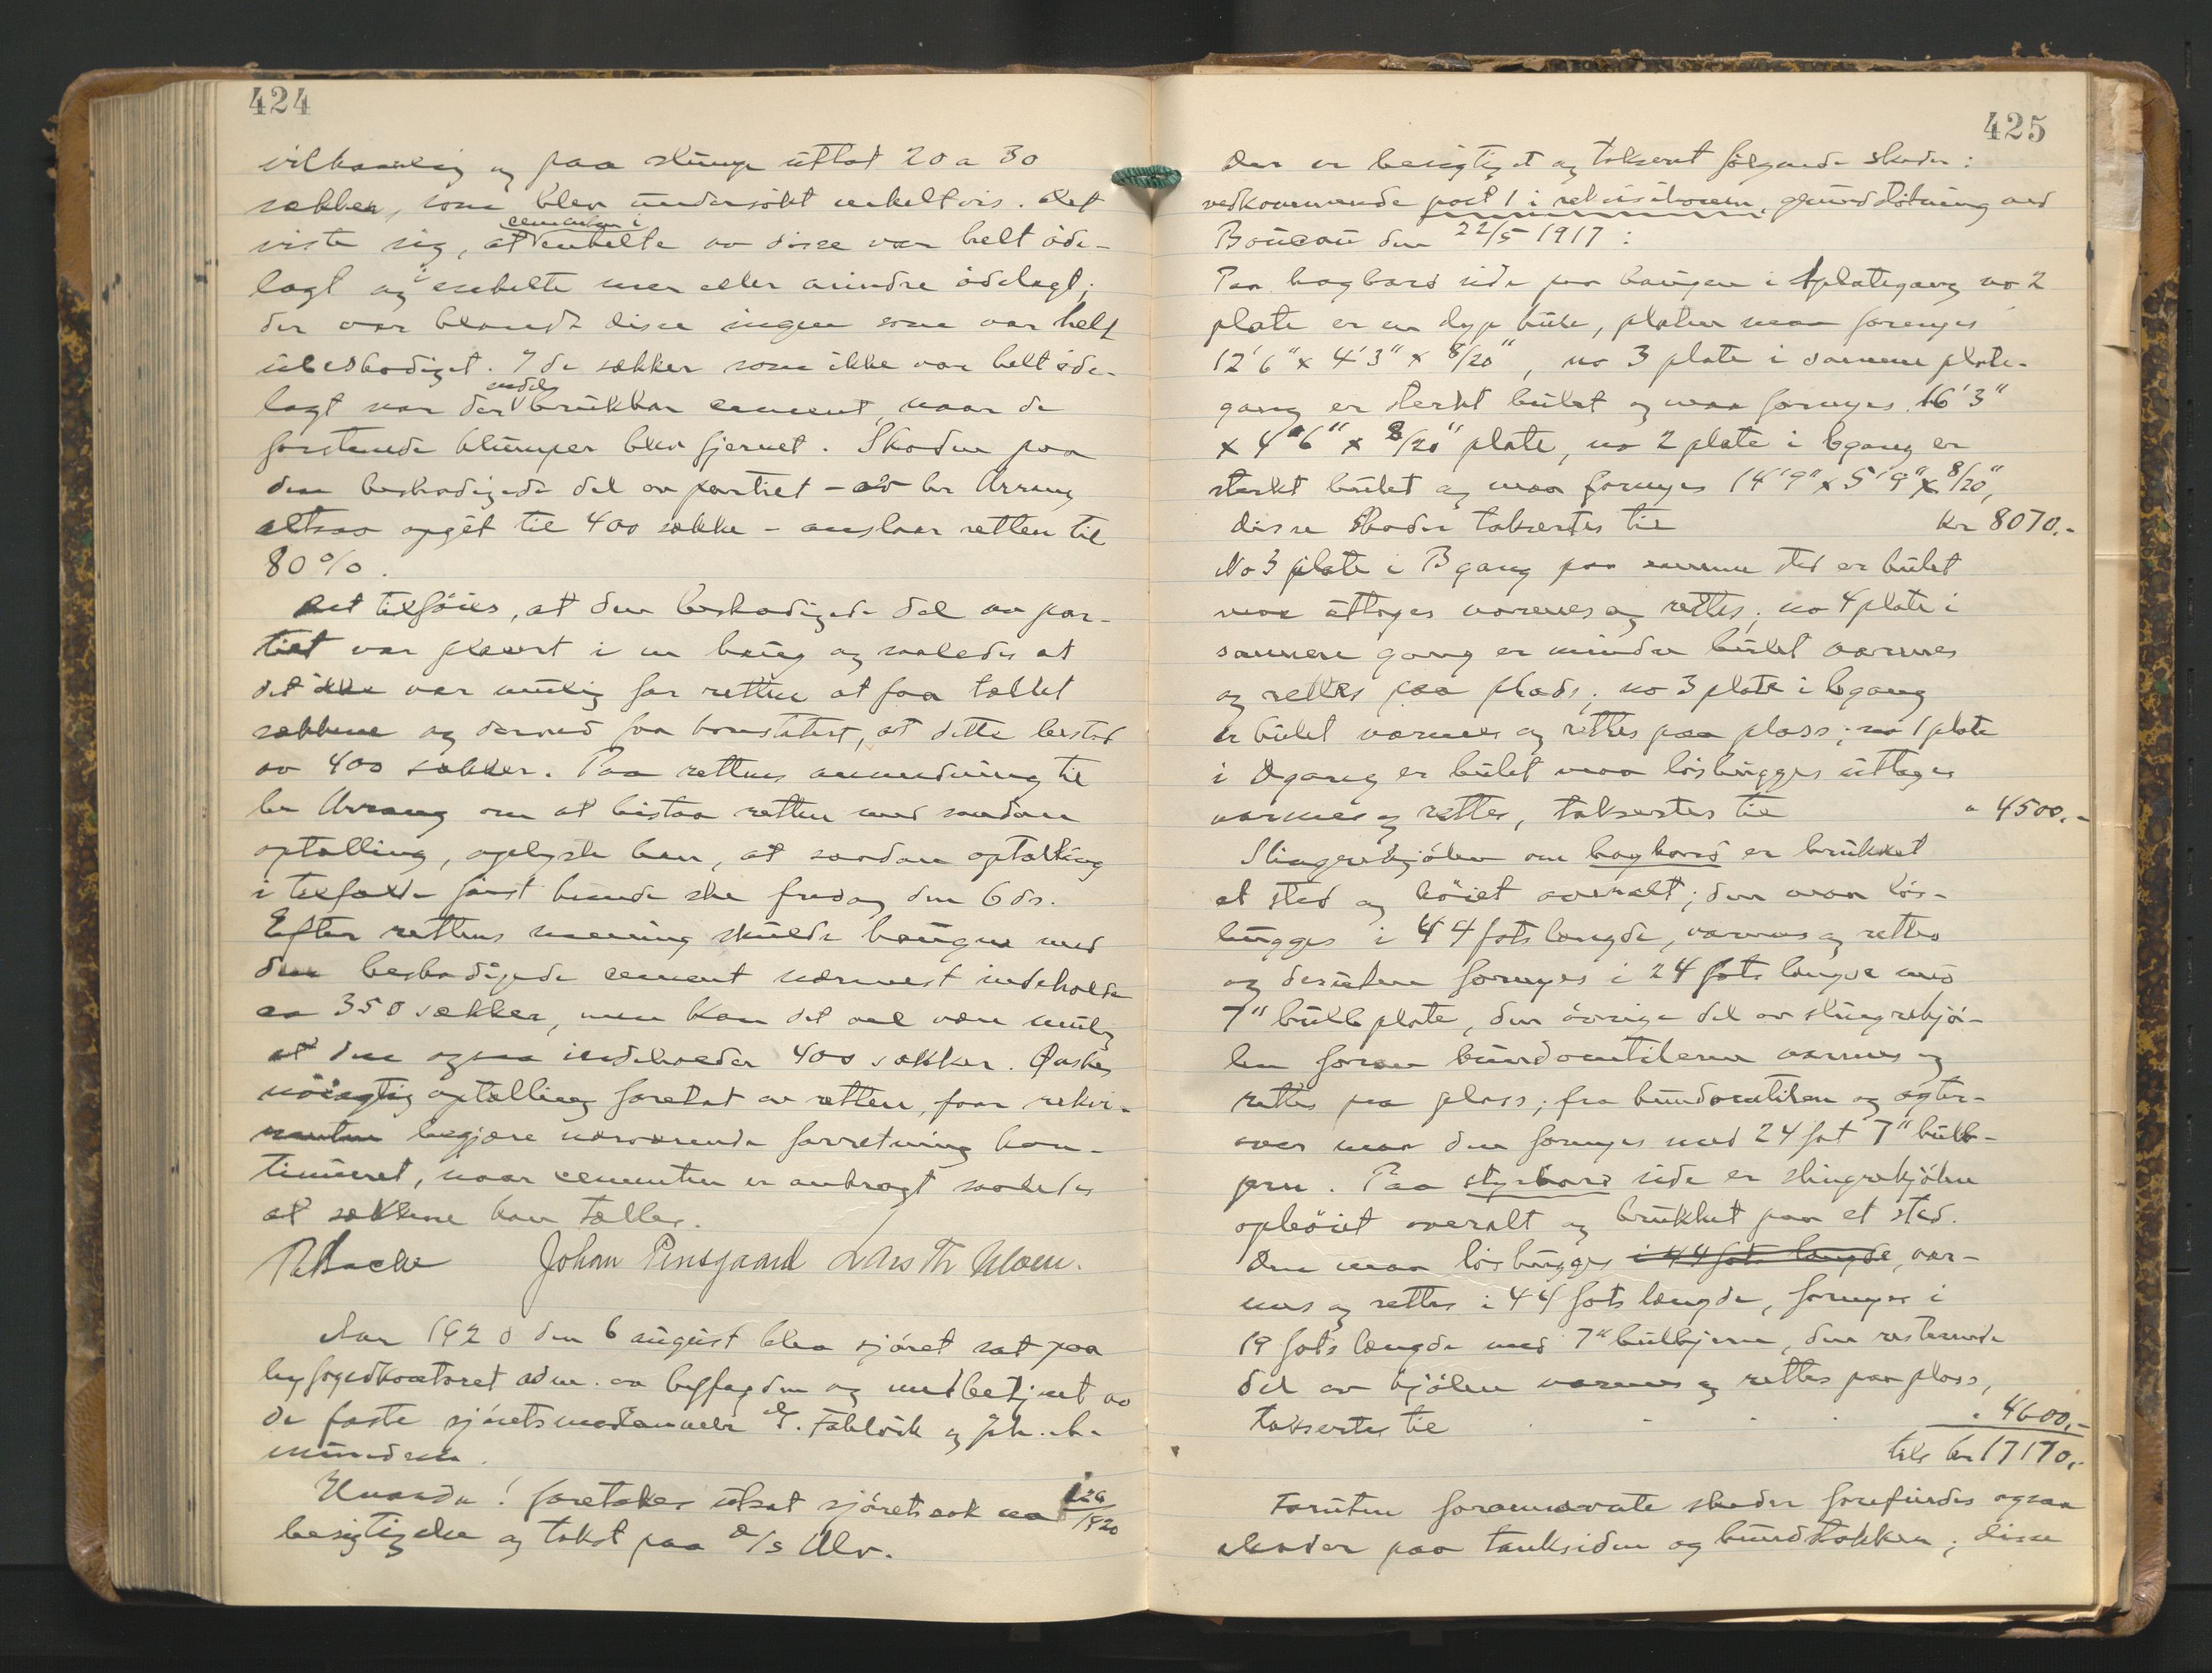 424
vilkaarlig og paa slump uttat 20 a 30
sækker, som blev undersökt enkeltvis. Det
viste sig, at cementen i enkelte av disse var helt öde-
lagt og i enkelte mer eller mindre ödelagt;
der var blandt disse ingen som var helt
ubeskadiget. I de sækker som ikke var helt öde-
lagt var der endel brukbar cement, naar de
forstenede klumper blev fjernet. Skaden paa
den beskadigede del av partiet – av hr Arrang
altsaa opgit til 400 sække – anslaar retten til
80%.
Det tilföies, at den beskadigede del av par-
tiet var plasert i en haug og saaledes at
det ikke var mulig for retten at faa tællet
sækkene og dermed faa konstatert, at dette bestod
av 400 sækker. Paa rettens anmodning til
hr Arrang om at bistaa retten med saadan
optælling, oplyste han, at saadan optælling
i tilfælde först kunde ske fredag den 6 ds.
Efter rettens mening skulde haugen med
den beskadigede cement nærmest indeholde
ca 350 sækker, men kan det vel være mulig
at den ogsaa indeholder 400 sækker. Önskes
nöiagtig optælling foretat av retten, faar rekvi-
renten begjære nærværende forretning kon-
tinuert, naar cementen er anbragt saaledes
at sækkene kan tælles.
Johan Pinsgaard Lars Th. Moen.
Aar 1920 den 6 august blev sjöret sat paa
byfogedkontoret adm. av byfogden og medbetjent av
de faste sjöretsmedlemmer
mundsen.
Hvorda! foretokes utsat sjöretssak no 126/1920
besigtigelse og takst paa D/s Alv.
425
Der er besigtiget og taksert fölgende skader:
vedkommende post 1 i rekvisitionen, grundstötning ved
Boucau den 22/5 1917:
Paa bagbord side paa baugen i A plategang no 2
plate er en dyp bule, platen maa fornyes
12'6" x 4'3" x 8/20", no 3 plate i samme plate-
gang er sterkt bulet og maa fornyes 16'3"
x 4'6" x 8/20" plate, no 2 plate i C gang er
sterkt bulet og maa fornyes 14'9" x 5'9" x 8/20",
disse skader taksertes til kr 8070.-
No 3 plate i B gang paa samme sted er bulet
maa uttages varmes og rettes; no 4 plate i
samme gang er mindre bulet varmes
og rettes paa plads; no 3 plate i C gang
er bulet varmes og rettes paa plass; no 1 plate
i D gang er bulet maa löshugges uttages
varmes og rettes, taksertes til " 4500.-
Slingrekjölen om bagbord er brukket
et sted og böiet overalt; den maa lös-
hugges i 44 fots længde, varmes og rettes
og desuten fornyes i 24 fots længde med
7" bulb plate, den övrige del av slingrekjö-
len foran bundventilene varmes og
rettes paa plass; fra bundventilen og agter-
over maa den fornyes med 24 fot 7" bulb-
jern. Paa styrbord side er slingrekjölen
opböiet overalt og brukket paa et sted.
Den maa löshugges i 44 fots længde, var-
mes og rettes i 44 fots længde, fornyes i
19 fots længde med 7" bulbjern, den resterende
del av kjölen varmes og rettes paa plass,
taksertes til - - - " 4600.-
tils kr 17170.-
Foruten forannævnte skader forefindes ogsaa
skader paa tanksiden og bundstokken; disse